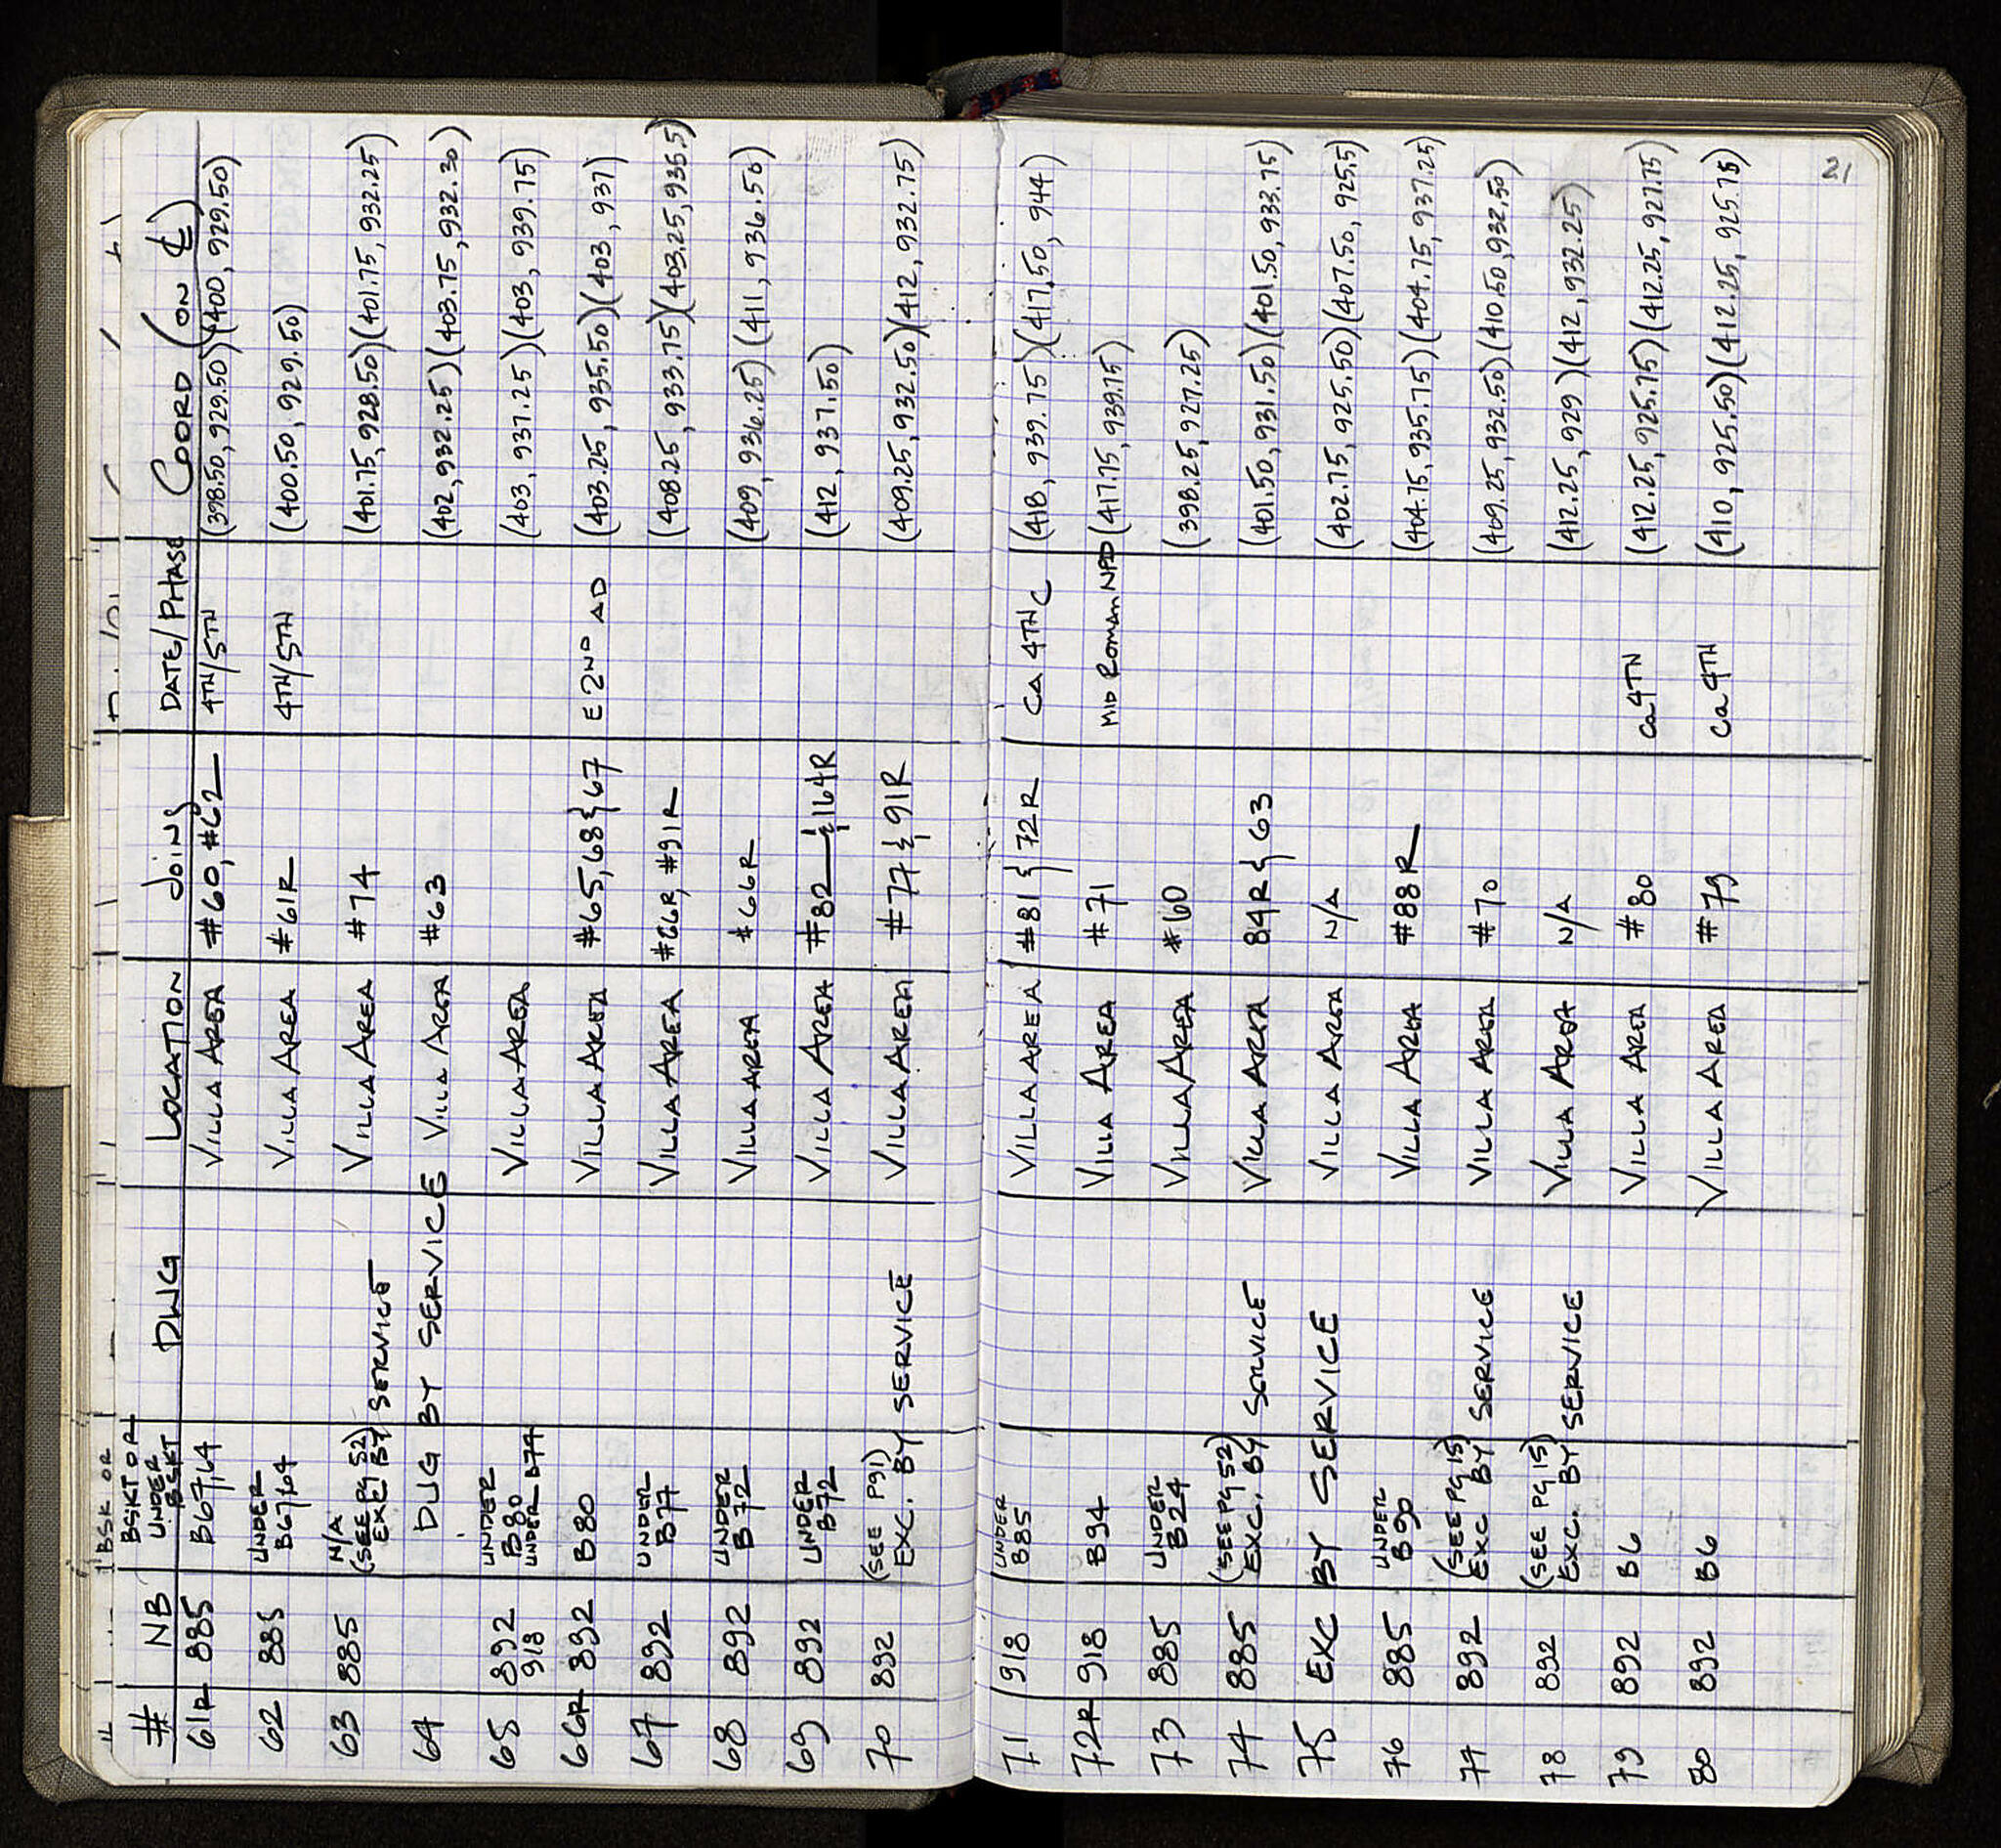 # NB BSKT OR UNDER BSKT DWG LOCATION Joins DATE/PHASE COORD (ON ℄)
61R 885 B67,64 VILLA AREA #60, #62 4TH/5TH (398.50, 929.50)(400, 929.50)
62 885 UNDER B67,64 VILLA AREA #61R 4TH/5TH (400.50, 929.50)
63 885 N/A (SEE PG 52) EXC. BY SERVICE VILLA AREA #74 (401.75, 928.50)(401.75, 932.25)
64 DUG BY SERVICE VILLA AREA #63 (402, 932.25)(403.75, 932.30)
65 892 918 UNDER B80 UNDER B74 VILLA AREA (403, 937.25)(403, 939.75)
66R 892 B80 VILLA AREA #65, 68 & 67 E 2ND AD (403.25, 935.50)(403, 937)
67 892 UNDER B77 VILLA AREA #66R, #91R (408.25, 933.75)(403.25, 935.5)
68 892 UNDER B72 VILLA AREA #66R (409, 936.25)(411, 936.50)
69 892 UNDER B72 VILLA AREA #82 & 164R (412, 937.50)
70 892 (SEE PG1) EXC. BY SERVICE VILLA AREA #77 & 91R (409.25, 932.50)(412, 932.75)
21
71 918 UNDER B85 VILLA AREA #81 & 72R CA 4TH C (418, 939.75)(417.50, 944)
72R 918 B94 VILLA AREA #71 MID ROMAN NPD (417.75, 939.75)
73 885 UNDER B24 VILLA AREA #60 (398.25, 927.25)
74 885 (SEE PG 52) EXC. BY SERVICE VILLA AREA 84R & 63 (401.50, 931.50)(401.50, 933.75)
75 EXC BY SERVICE VILLA AREA N/A (402.75, 925.50)(407.50, 925.5)
76 885 UNDER B90 VILLA AREA #88R (404.75, 935.75)(404.75, 937.25)
77 892 (SEE PG 15) EXC BY SERVICE VILLA AREA #70 (409.25, 932.50)(410.50, 932.50)
78 892 (SEE PG 15) EXC. BY SERVICE VILLA AREA N/A (412.25, 929)(412, 932.25)
79 892 B6 VILLA AREA #80 ca 4TH (412.25, 925.75)(412.25, 927.75)
80 892 B6 VILLA AREA #79 ca 4TH (410, 925.50)(412.25, 925.75)